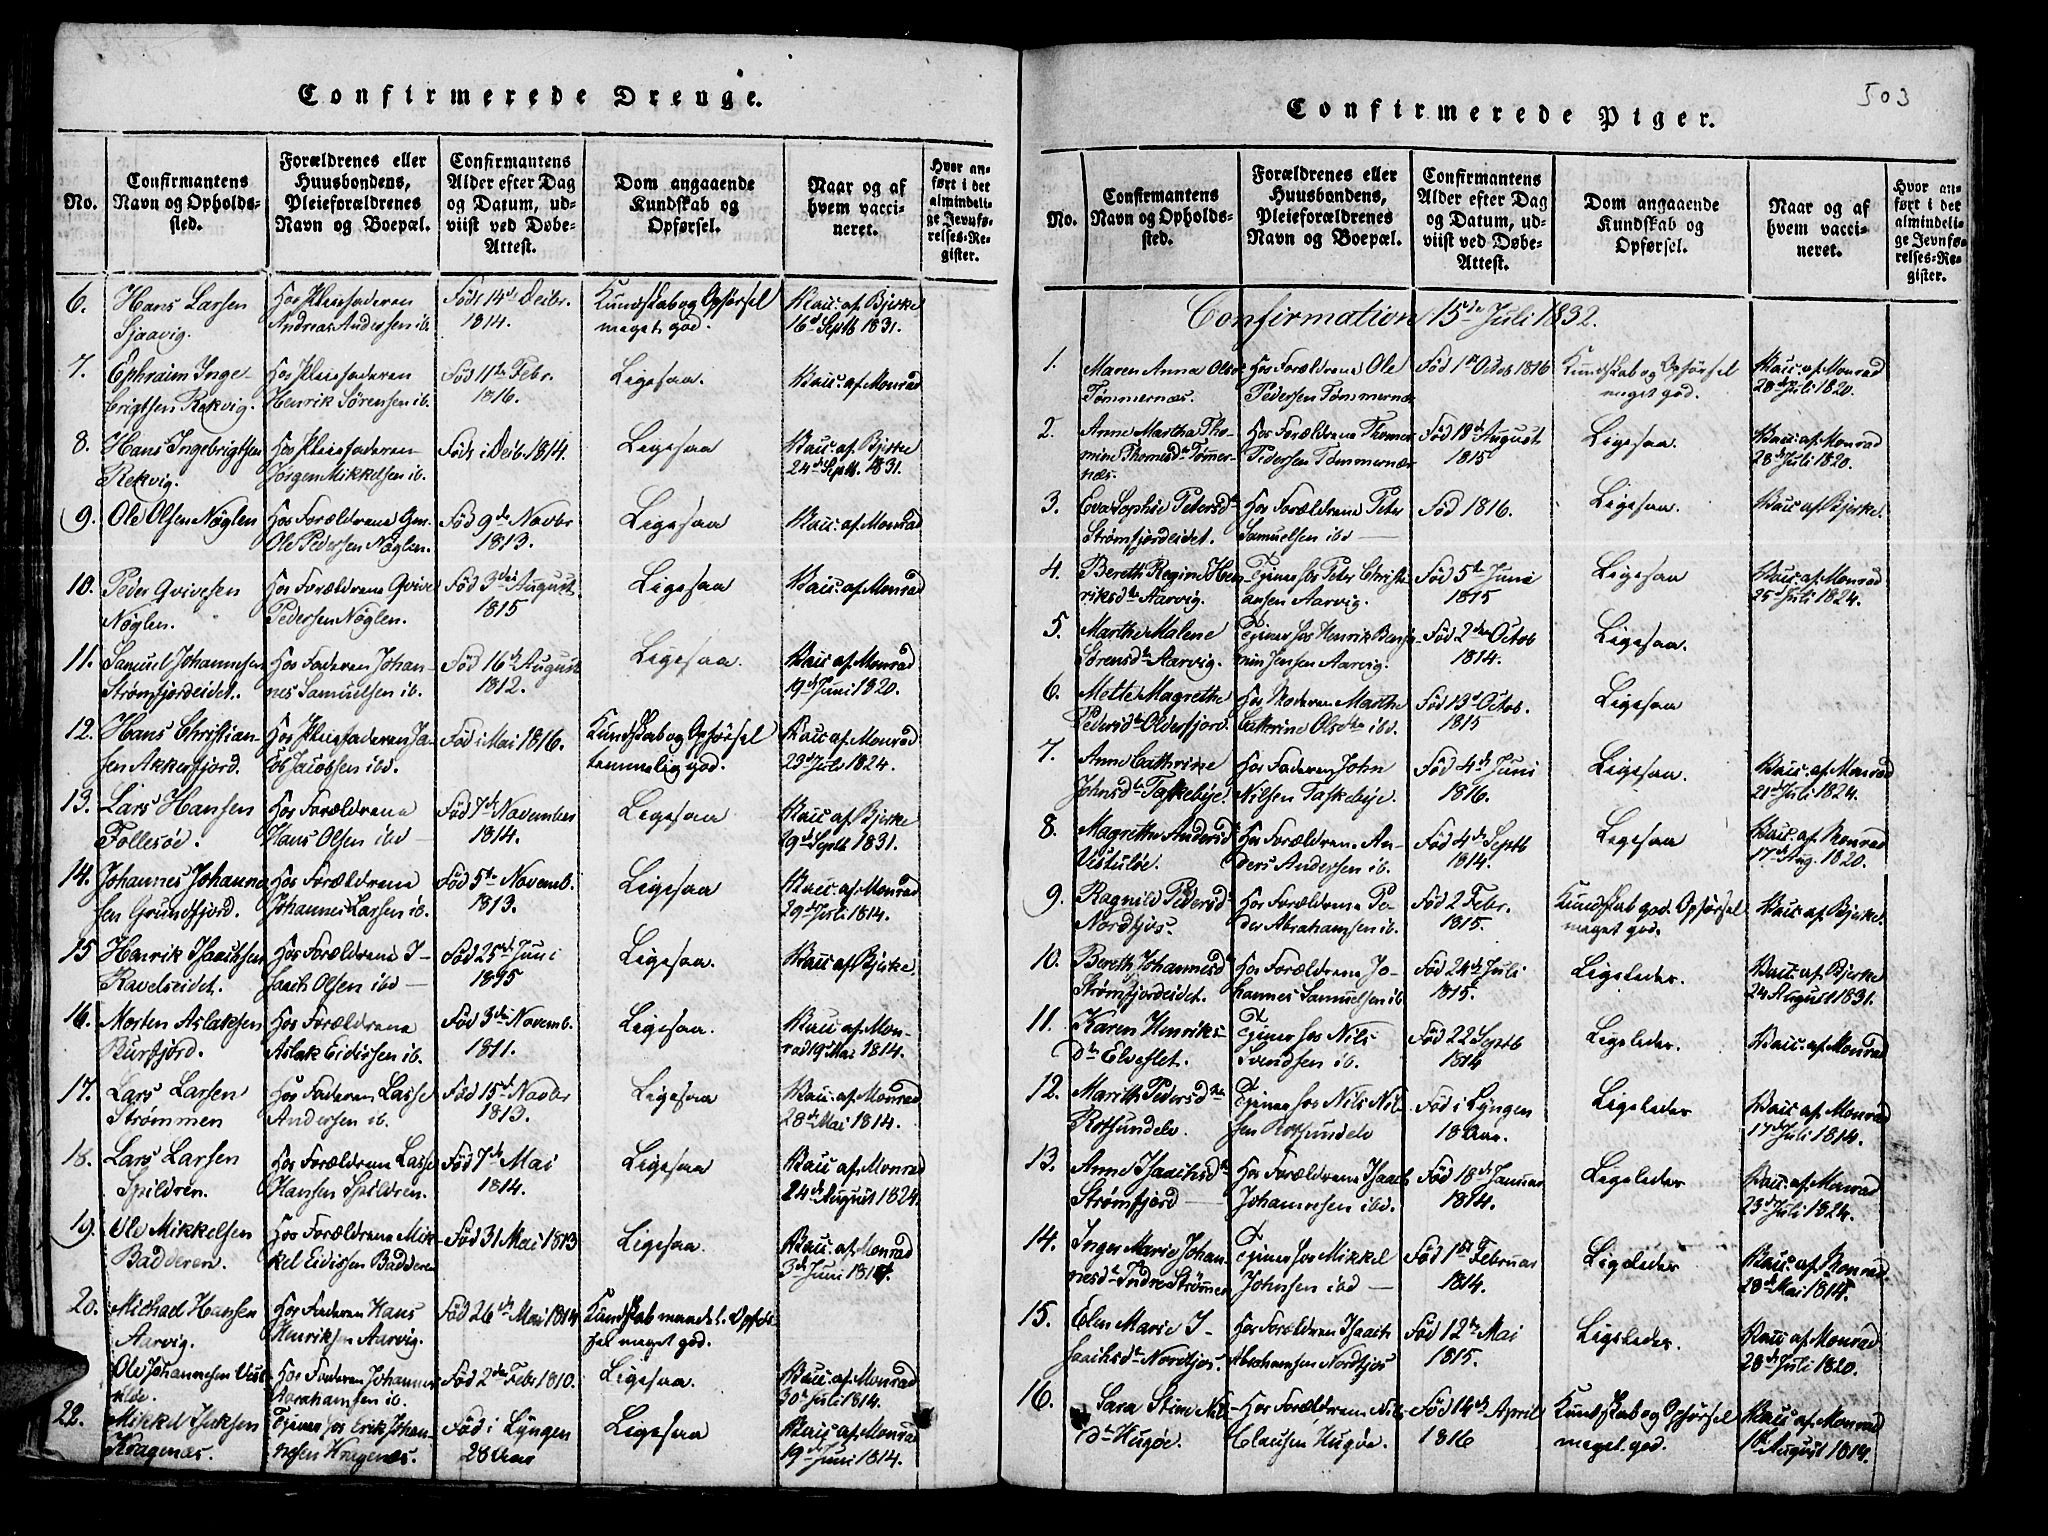 Confirmerede Drenge.
No.
Confirmantens
Navn og Opholds-
sted.
Forældrenes eller
Huusbondens,
Pleieforældrenes
Navn og Boepæl.
Confirmantens
Alder efter Dag
og Datum, ud-
viist ved Døbe-
Attest.
Dom angaaende
Kundskab og
Opførsel.
Naar og af
hvem vacci-
neret.
Hvor an-
ført i det
almindeli-
ge Jevnfø-
relses-Re-
gister.
6. Hans Larsen Hos Pleiefaderen Føds 14de Decbr. Kundskab og Opførsel Vacc. af Bjerke
Sjaavig. Andreas Andersen ib. 1814. meget god. 16d Septb 1831.
7. Ephraim Inge- Hos Pleiefaderen Fød 11te Febr. Ligesaa. Vacc. af Monrad
brigtsen Rekvig. Henrik Sörensen ib. 1816.
8. Hans Ingebrigtsen Hos Pleiefaderen Føds i Decb. 1814. Ligesaa Vacc. af Bjerke
Rekvig. Jørgen Mikkelsen ib. 24d Septb. 1831.
9. Ole Olsen Nøglen Hos Forældrene Gm. Fød 9de Novbr Ligesaa Vacc. af Monrad
Ole Pedersen Nøglen. 1813.
10. Peder Qvivesen Hos Forældrene Qvive Fød 3die August Ligesaa Vacc. af Monrad
Nøglen. Pedersen Nøglen. 1815
11. Samuel Johannesen Hos Faderen Johan- Fød 16de August Ligesaa. Vacc. af Monrad
Strømfjordeidet. nes Samuelsen ib. 1812. 19de Juni 1820.
12. Hans Christian- Hos Pleiefaderen Ja- Fød i Mai 1816. Kundskab og Opførsel Vacc. af Monrad
sen Akkerfjord. cob Jacobsen ibd. temmelig god. 23d Juli 1824.
13. Lars Hansen Hos Forældrene Fød 7de November Ligesaa Vacc. af Bjerke
Follesøe. Hans Olsen ibd — 1814. 29d Septb 1831.
14. Johannes Johanne- Hos Forældrene Fød 5te Novemb. Ligesaa Vacc. af Monrad
sen Grundfjord. Johannes Larsen ib. 1813. 29de Juli 1814.
15 Henrik Isaachsen Hos Forældrene I- Fød 25de Juni Ligesaa. Vacc af Bjerke
Ravelseidet. saach Olsen ibd — 1815
16. Morten Aslaksen Hos Forældrene Fød 3de Novemb. Ligesaa. Vacc. af Mon-
Burfjord. Aslak Eidissen ib. 1811. rad 19 Mai 1814.
17. Lars Larsen Hos Faderen Lasse Fød 15de Novbr Ligesaa Vacc. af Monrad
Strømmen Andersen ib. 1813. 28de Mai 1814.
18. Lars Larsen Hos Forældrene Lasse Fød 7de Mai Ligesaa Vacc af Monrad
Spildren. Hansen Spildren. 1814. 24de August 1824.
19. Ole Mikkelsen Hos Forældrene Mik- Fød 31 Mai 1813 Ligesaa. Vacc. af Monrad
Badderen. kel Eidissen Badderen 3de Juni 1814.
20. Michael Hansen Hos Faderen Hans Fød 26de Mai 1814 Kundskab maadel. Opfør-
Aarvig. Henriksen Aarvig. sel meget god.
Ole Johannesen Hos Faderen Johannes Fød 2den Febr 1810. Ligesaa. Vacc. af Monrad
Abrahamsen ib. 30te Juli 1814.
22. Mikkel Isaksen Tjener hos Erik Johan- Fød i Lyngen Ligesaa Vacc. af Monrad
Kragenæs. nesen Kragenæs. 28 Aar 19de Juni 1814.
503
Confirmerede Piger.
No.
Confirmantens
Navn og Opholds-
sted.
Forældrenes eller
Huusbondens,
Pleieforældrenes
Navn og Boepæl.
Confirmantens
Alder efter Dag
og Datum, ud-
viist ved Døbe-
Attest.
Dom angaaende
Kundskab og
Opførsel.
Naar og af
hvem vacci-
neret.
Hvor an-
ført i det
almindeli-
ge Jevnfø-
relses-Re-
gister.
Confirmation 15de Juli 1832.
1. Maren Anna Olsd Hos Forældrene Ole Fød 1ste Octob 1816 Kundskab og Opførsel Vacc. af Monrad
Tømmernæs. Pedersen Tømmernæs meget god. 28de Juli 1820.
2. Anne Martha Tho- Hos Forældrene Thomas Fød 18de August Ligesaa. Vacc. af Monrad
mine Thomesdtr Tømmer- Pedersen Tømmernæs 1815 28de Juli 1820.
næs.
3. Eva Sophie Petersdtr Hos Forældrene Peter Fød 1816. Ligesaa. Vacc af Bjerke.
Strømfjordeidet. Samuelsen ibd —
4. Bereth Regine Hen- Tjener hos Peter Christi- Fød 5te Juni Ligesaa Vacc. af Monrad
riksdtr Aarvig. ansen Aarvig. 1815 25d Juli 1824.
5. Marthe Malene Tjener hos Henrik Benja- Fød 2den Octob Ligesaa.
Sørensdtr Aarvig. min Jensen Aarvig. 1814.
6. Mette Magrethe Hos Moderen Marthe Fød 13d Octob. Ligesaa
Pedersdtr Olderfjord. Cathrine Olsdtr ibd. 1815
7. Anne Cathrine Hos Faderen John Fød 4de Juni Ligesaa. Vacc. af Monrad
Johnsdtr Taskebye. Nilsen Taskebye. 1816. 21d Juli 1824.
8. Magrethe Andersdtr Hos Forældrene An- Fød 4de Septb Ligesaa Vacc. af Monrad
ders Andersen ib. 1814. 17de Aug. 1820.
9. Ragnild Pedersd Hos Forældrene Pe- Fød 2 Febr. Kundskab god. Opførsel Vacc af Bjerke.
Nordkjos. der Abrahamsen ib. 1815. meget god.
10. Bereth Johannesdtr Hos Forældrene Jo- Fød 24de Juli Ligeledes. Vacc af Bjerke
Strømfjordeidet. hannes Samuelsen ib 1815. 24 August 1831.
11. Karen Henriks- Tjener hos Nils Fød 22 Septb Ligeledes. Vacc. af Monrad
dtr Elveslet. Svendsen ib. 1814
12. Marith Pedersdtr Tjener hos Nils Nil- Fød i Lyngen Ligeledes Vacc af Monrad
Rotsundelv. sen Rotsundelv 18 Aar. 17de Juli 1814.
13. Anne Isaachsdtr Hos Forældrene Isaach Fød 18de Januar Ligeledes Vacc. af Monrad
Strømfjord — Johannesen ibd. 1814. 23d Juli 1824.
14. Inger Marie Johan- Tjener hos Mikkel Fød 1ste Februar Ligeledes Vacc. af Monrad
nesdtr Indre Strømmen Johnsen ibd — 1814. 28de Mai 1814.
15. Elen Marie I- Hos Forældrene Isaach Fød 12te Mai Ligeledes. Vacc af Monrad
saachsdtr Nordkjos. Abrahamsen Nordkjos 1815. 28de Juli 1820.
16. Sara Stine Nils- Hos Forældrene Nils Fød 14de April Kundskab og Opførsel Vacc. af Monrad
dtr Hugøe. Clausen Hugøe. 1816 meget god. August 1814.